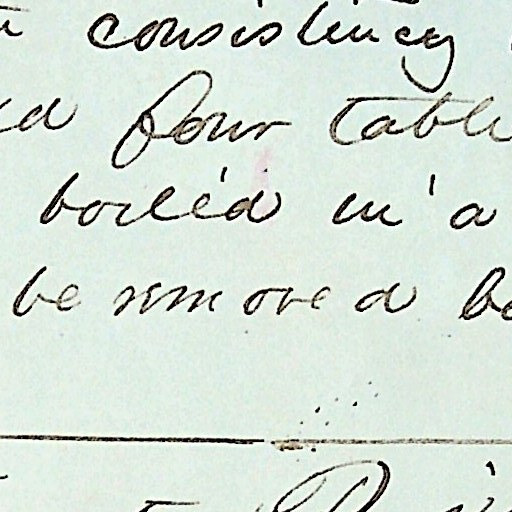 consistency
four table
boiled in a
be removed